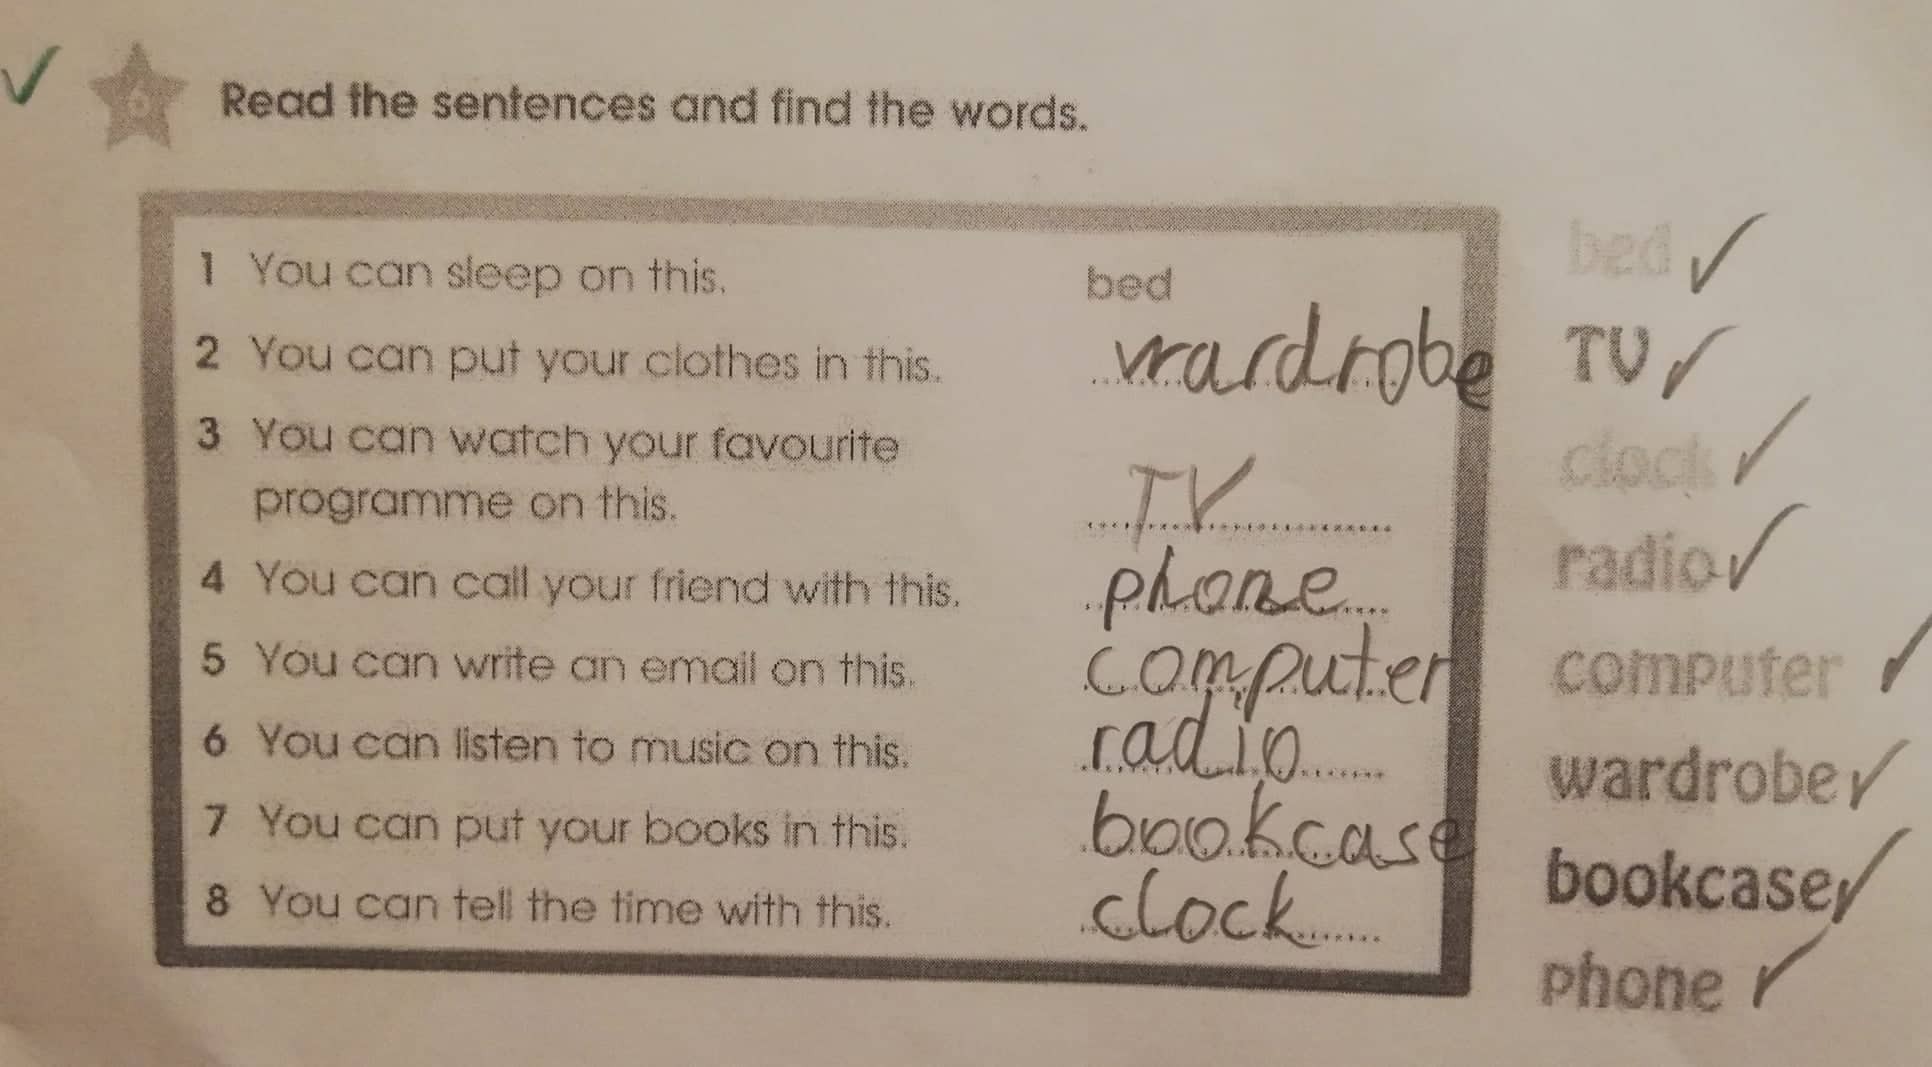 6 Read the sentences and find the words.
1 You can sleep on this. bed
2 You can put your clothes in this. wardrobe
3 You can watch your favourite
programme on this. TV
4 You can call your friend with this. phone
5 You can write an email on this. computer
6 You can listen to music on this. radio
7 You can put your books in this. bookcase
8 You can tell the time with this. clock
bed
TV
clock
radio
computer
wardrobe
bookcase
phone